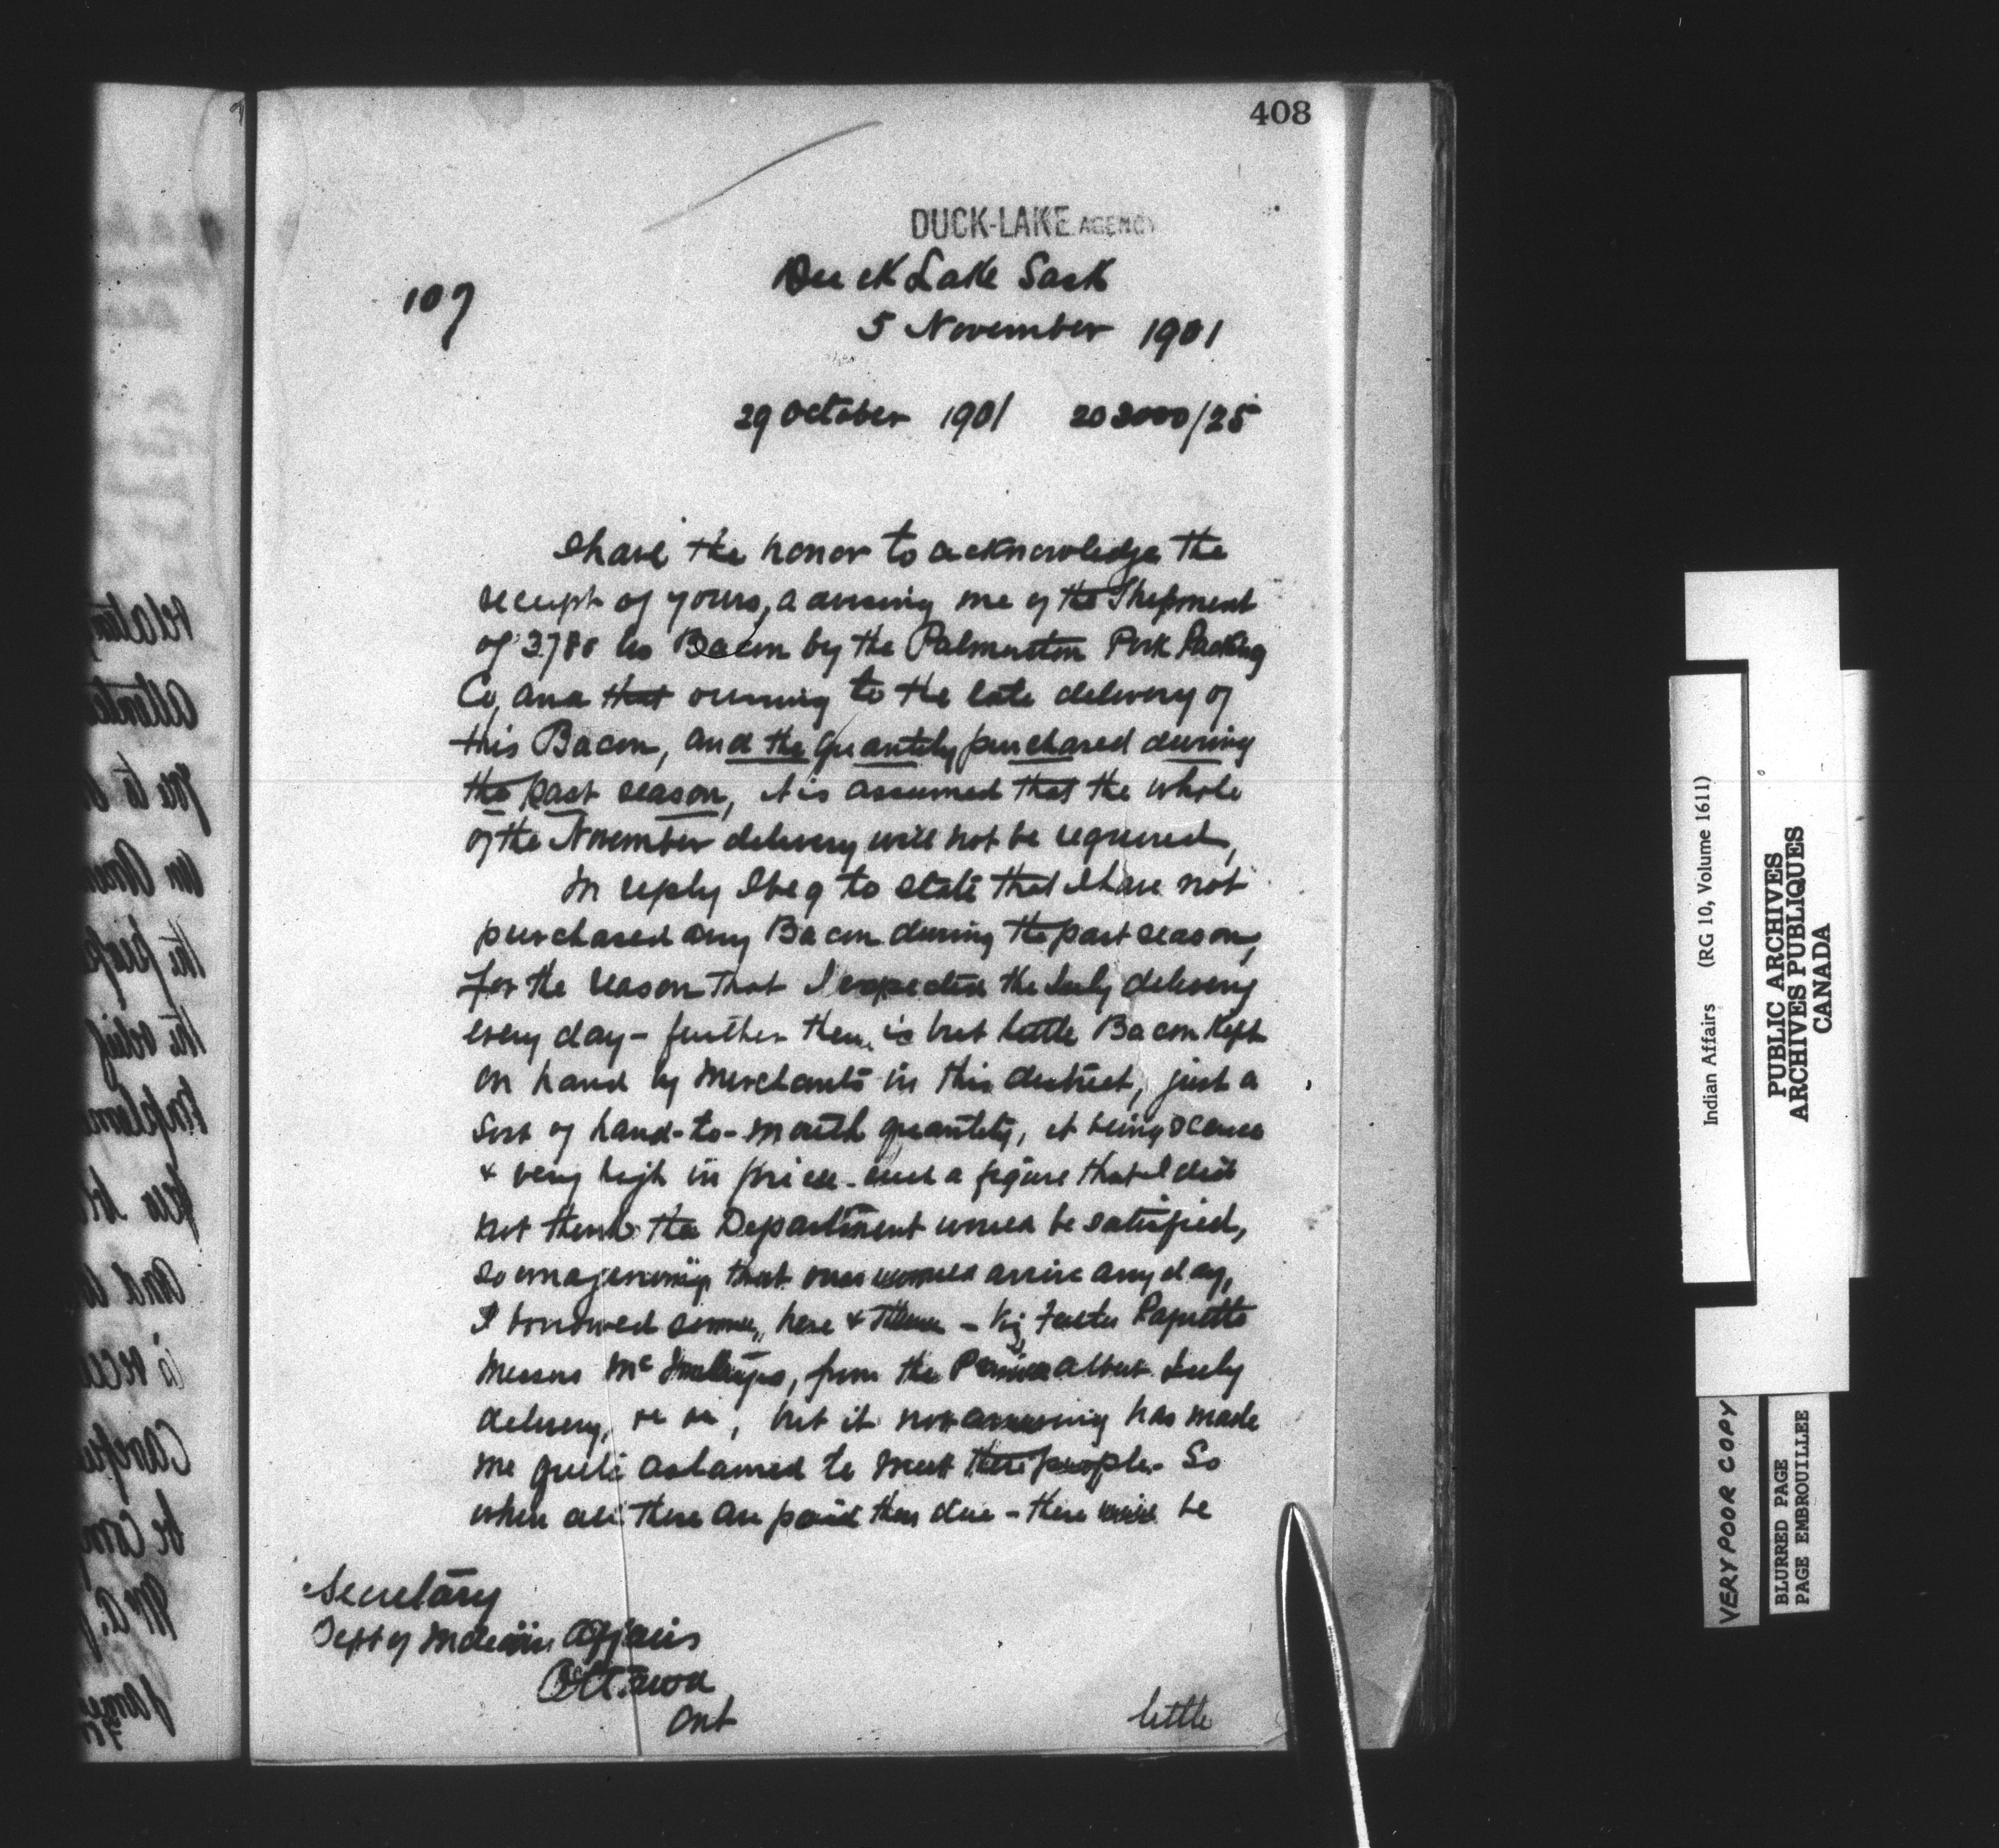 408
DUCK-LAKE AGENCY
Duck Lake Sask
107
5 November 1901
29 October 1901 203000/25
I have the honor to acknowledge the
receipt of yours, advising me of the Shipment
of 3788 lbs Bacon by the Palmerston Pork Packing
Co, and that owing to the late delivery of
this Bacon, and the quantity purchased during
the past season, it is assumed that the whole
of the November delivery will not be required,
In reply I beg to state that I have not
purchased any Bacon during the past season,
for the reason that I expected the July delivery
every day - further there is but little Bacon kept
on hand by Merchants in this district, just a
Sort of hand-to-mouth quantity, it being scarce
& very high in price - such a figure that I did
not think the Department would be satisfied,
so imagining that ours would arrive any day,
I borrowed some, here & there - Viz Father Paquette
Messrs Mc, from the Prince Albert July
delivery, but it not arriving has made
me quite ashamed to meet these people. So
when all these are paid their due - there will be
Secretary
Dept of Indian Affairs
Ottawa
Ont
little
Indian Affairs (RG 10, Volume 1611)
PUBLIC ARCHIVES
ARCHIVES PUBLIQUES
CANADA
VERY POOR COPY
BLURRED PAGE
PAGE EMBROUILLEE